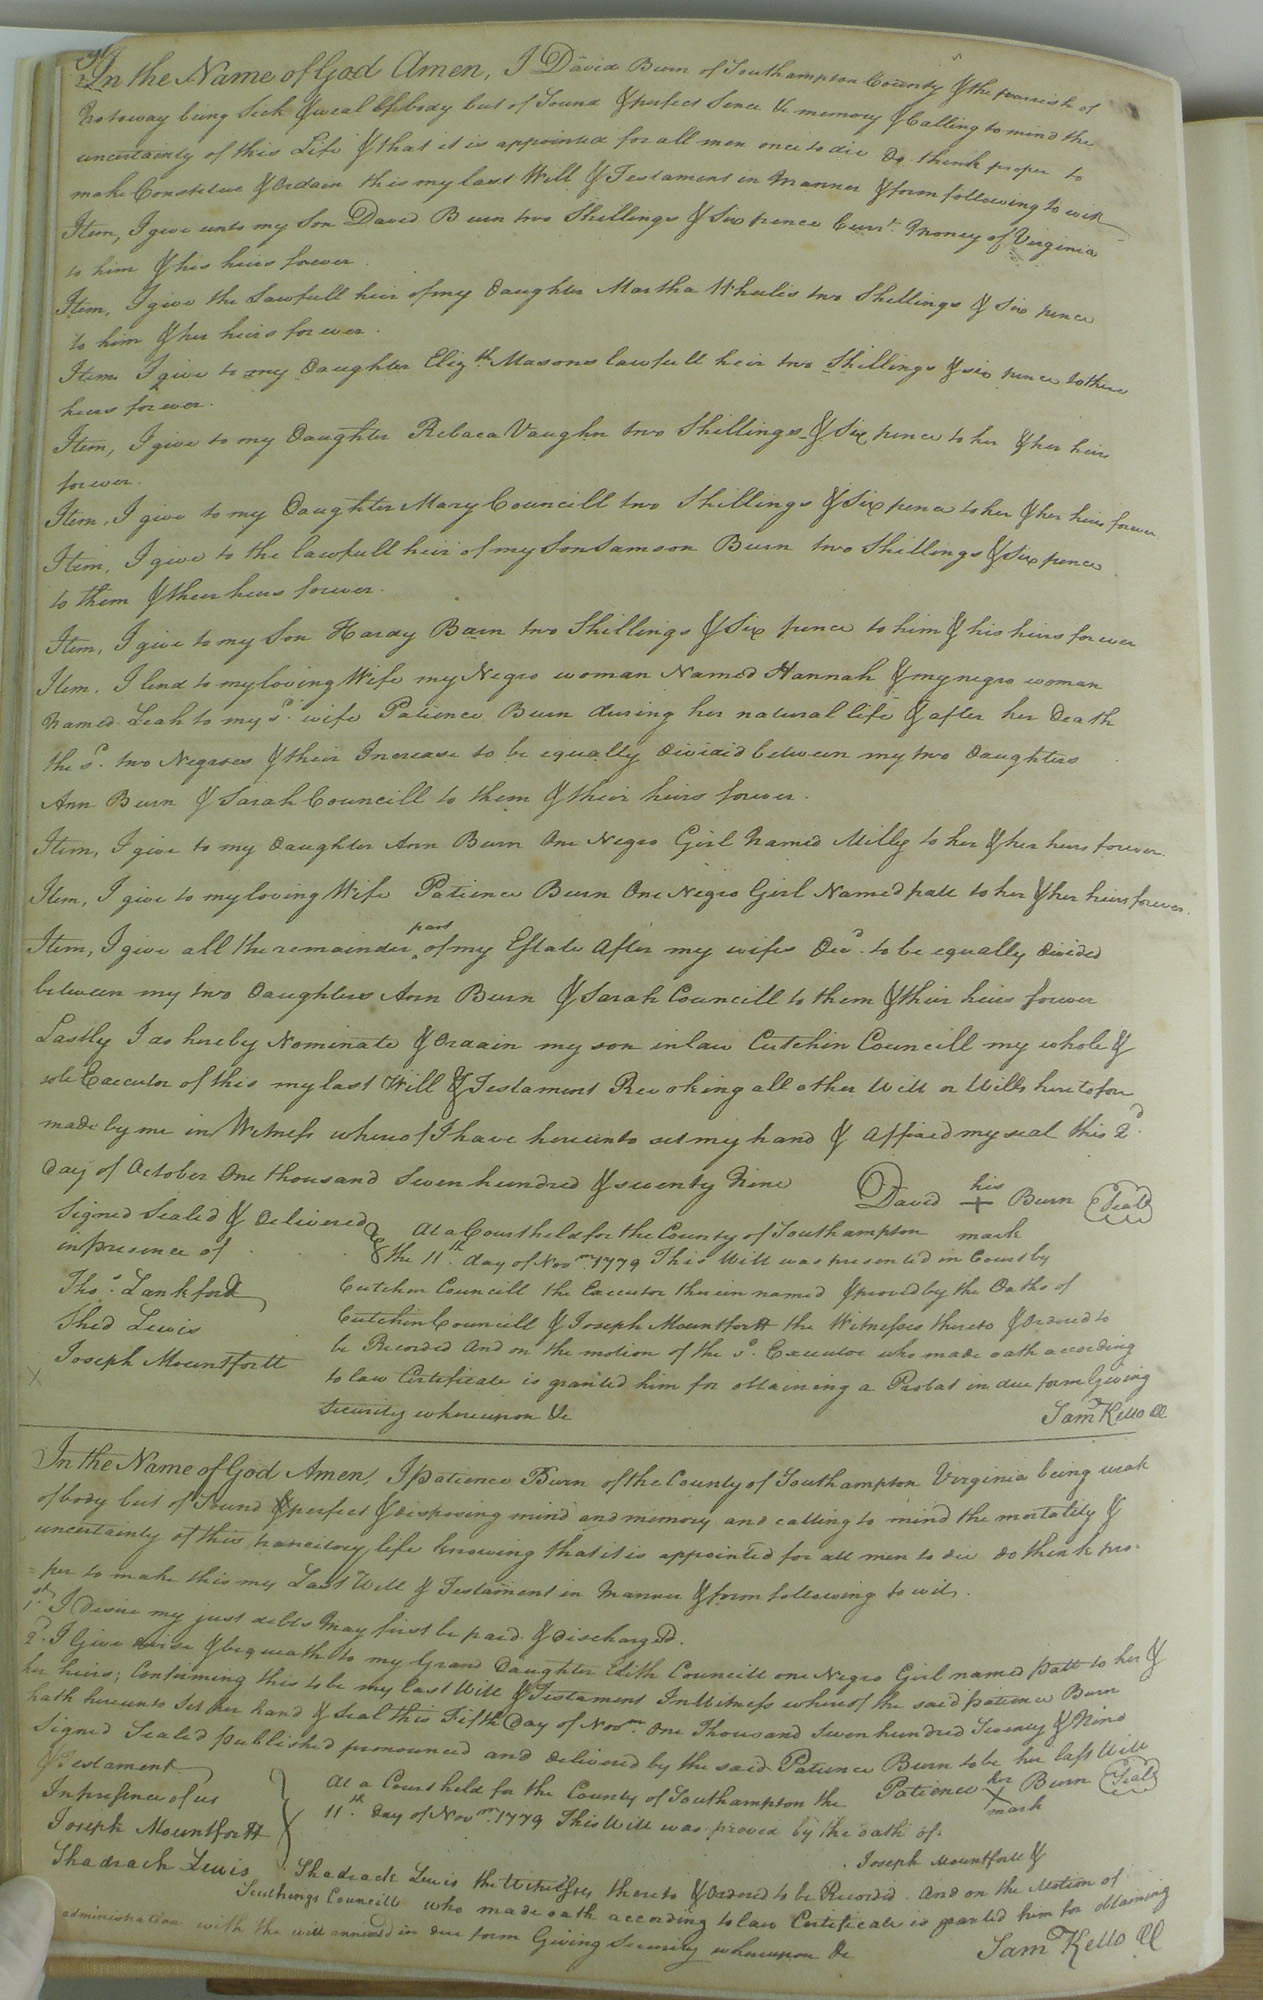 In the Name of God Amen, I David Burn of Southampton County & the parrish of
Notoway being Sick & weak of body but of Sound & perfect Sence & memory & Calling to mind the
uncertainty of this Life & that it is appointed for all men once to die do think proper to
make Constitue & Ordain this my last Will & Testament in Manner & form following to wit
Item, I give unto my Son David Burn two Shillings & Six pence Curr.t Money of Virginia
to him & his heirs forever.
Item, I give the Lawfull heir of my Daughter Martha Whelis two Shillings & Six pence
to him & her heirs forever.
Item I give to my Daughter Eliz.th Masons lawfull heir two Shillings & six pence to their
heirs forever.
Item, I give to my Daughter Rebaca Vaughn two Shillings & Six pence to her & her heirs
forever.
Item, I give to my Daughter Mary Councill two Shillings & Six pence to her & her heirs forever
Item, I give to the lawfull heir of my Son Samson Burn two Shillings & Six pence
to them & their heirs forever.
Item, I give to my Son Hardy Barn two Shillings & Six pence to him & his heirs forever
Item, I lend to my loving Wife my Negro woman Named Hannah & my negro woman
Named Leah to my s.d wife Patience Burn during her natural life & after her Death
the s.d two Negroes & their Increase to be equally divided between my two daughters
Ann Burn & Sarah Councill to them & their heirs forever.
Item, I give to my daughter Ann Burn One Negro Girl Named Milly to her & her heirs forever.
Item, I give to my loving Wife Patience Burn One Negro Girl Named patt to her & her heirs forever.
Item, I give all the remainder part of my Estate After my wifes Dec.d to be equally divided
between my two daughters Ann Burn & Sarah Councill to them & their heirs forever
Lastly I do hereby Nominate & Ordain my son in law Cutchin Councill my whole &
sole Executor of this my last Will & Testament Revoking all other Will or Wills heretofore
made by me in Witness whereof I have hereunto set my hand & affixed my seal this 2.d
day of October One thousand Seven hundred & seventy Nine
David his + mark Burn (Seal)
Signed Sealed & Delivered
in presence of
Tho.s Lankford
Shed Lewis
Joseph Mountfortt
At a Court held for the County of Southampton
the 11.th day of Nov.m 1779 This Will was presented in Court by
Cutchin Councill the Executor therein named & proved by the Oaths of
Cutchin Councill & Joseph Mountfortt the Witnesses thereto & Ordered to
be Recorded And on the motion of the s.d Executor who made oath according
to law Certificate is granted him for obtaining a Probat in due form Giving
Security whereupon &c
Sam Kello CC
In the Name of God Amen, I patience Burn of the County of Southampton Virginia being weak
of body but of Sound & perfect & disposing mind and memory and calling to mind the mortality &
uncertainty of this transitory life knowing that it is appointed for all men to die do think pro-
=per to make this my Last Will & Testament in Manner & form following to wit.
1.st I Desire my just debts may first be paid & discharged.
2.d I Give devise & bequeath to my Grand Daughter Edith Councill one Negro Girl named patt to her &
her heirs; Confirming this to be my last Will & Testament In Witness whereof the said patience Burn
hath hereunto Set her hand & Seal this Fifth Day of Nov.m One Thousand Seven hundred Seventy & Nine
Signed Sealed published pronounced and delivered by the said Patience Burn to be her last Will
& Testament
In presence of us
Joseph Mountfortt
Shadrach Lewis
Patience her X mark Burn (Seal)
At a Court held for the County of Southampton the
11.th day of Nov.m 1779 This Will was proved by the oath of
Joseph Mountfortt &
Shadrack Lewis the Witnesses thereto & Ordered to be Recorded. And on the Motion of
Councill who made oath according to law Certificate is granted him for obtaining
administration with the will annexed in due form Giving Security whereupon &c
Sam Kello CC